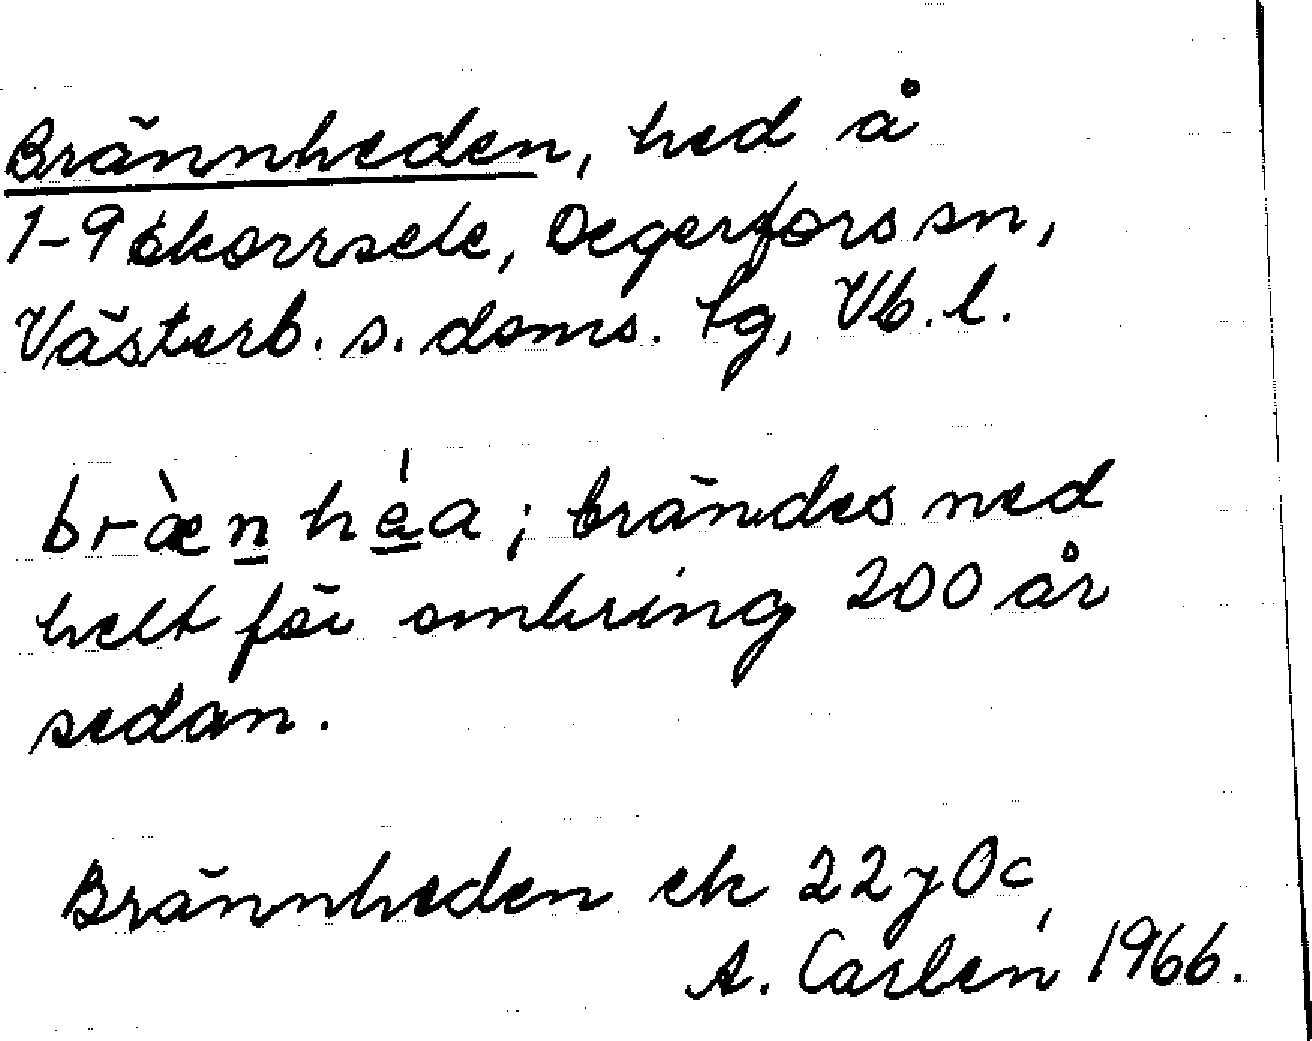 Brännheden, hed å
1-9 Ekorrsele, Degerfors sn,
Västerb. s. doms. tg, Vb. l.
bræ̀n̲ hé̲a; brändes ned
helt för omkring 200 år
sedan.
Brännheden ek 22 J 0c
A. Carlén, 1966.